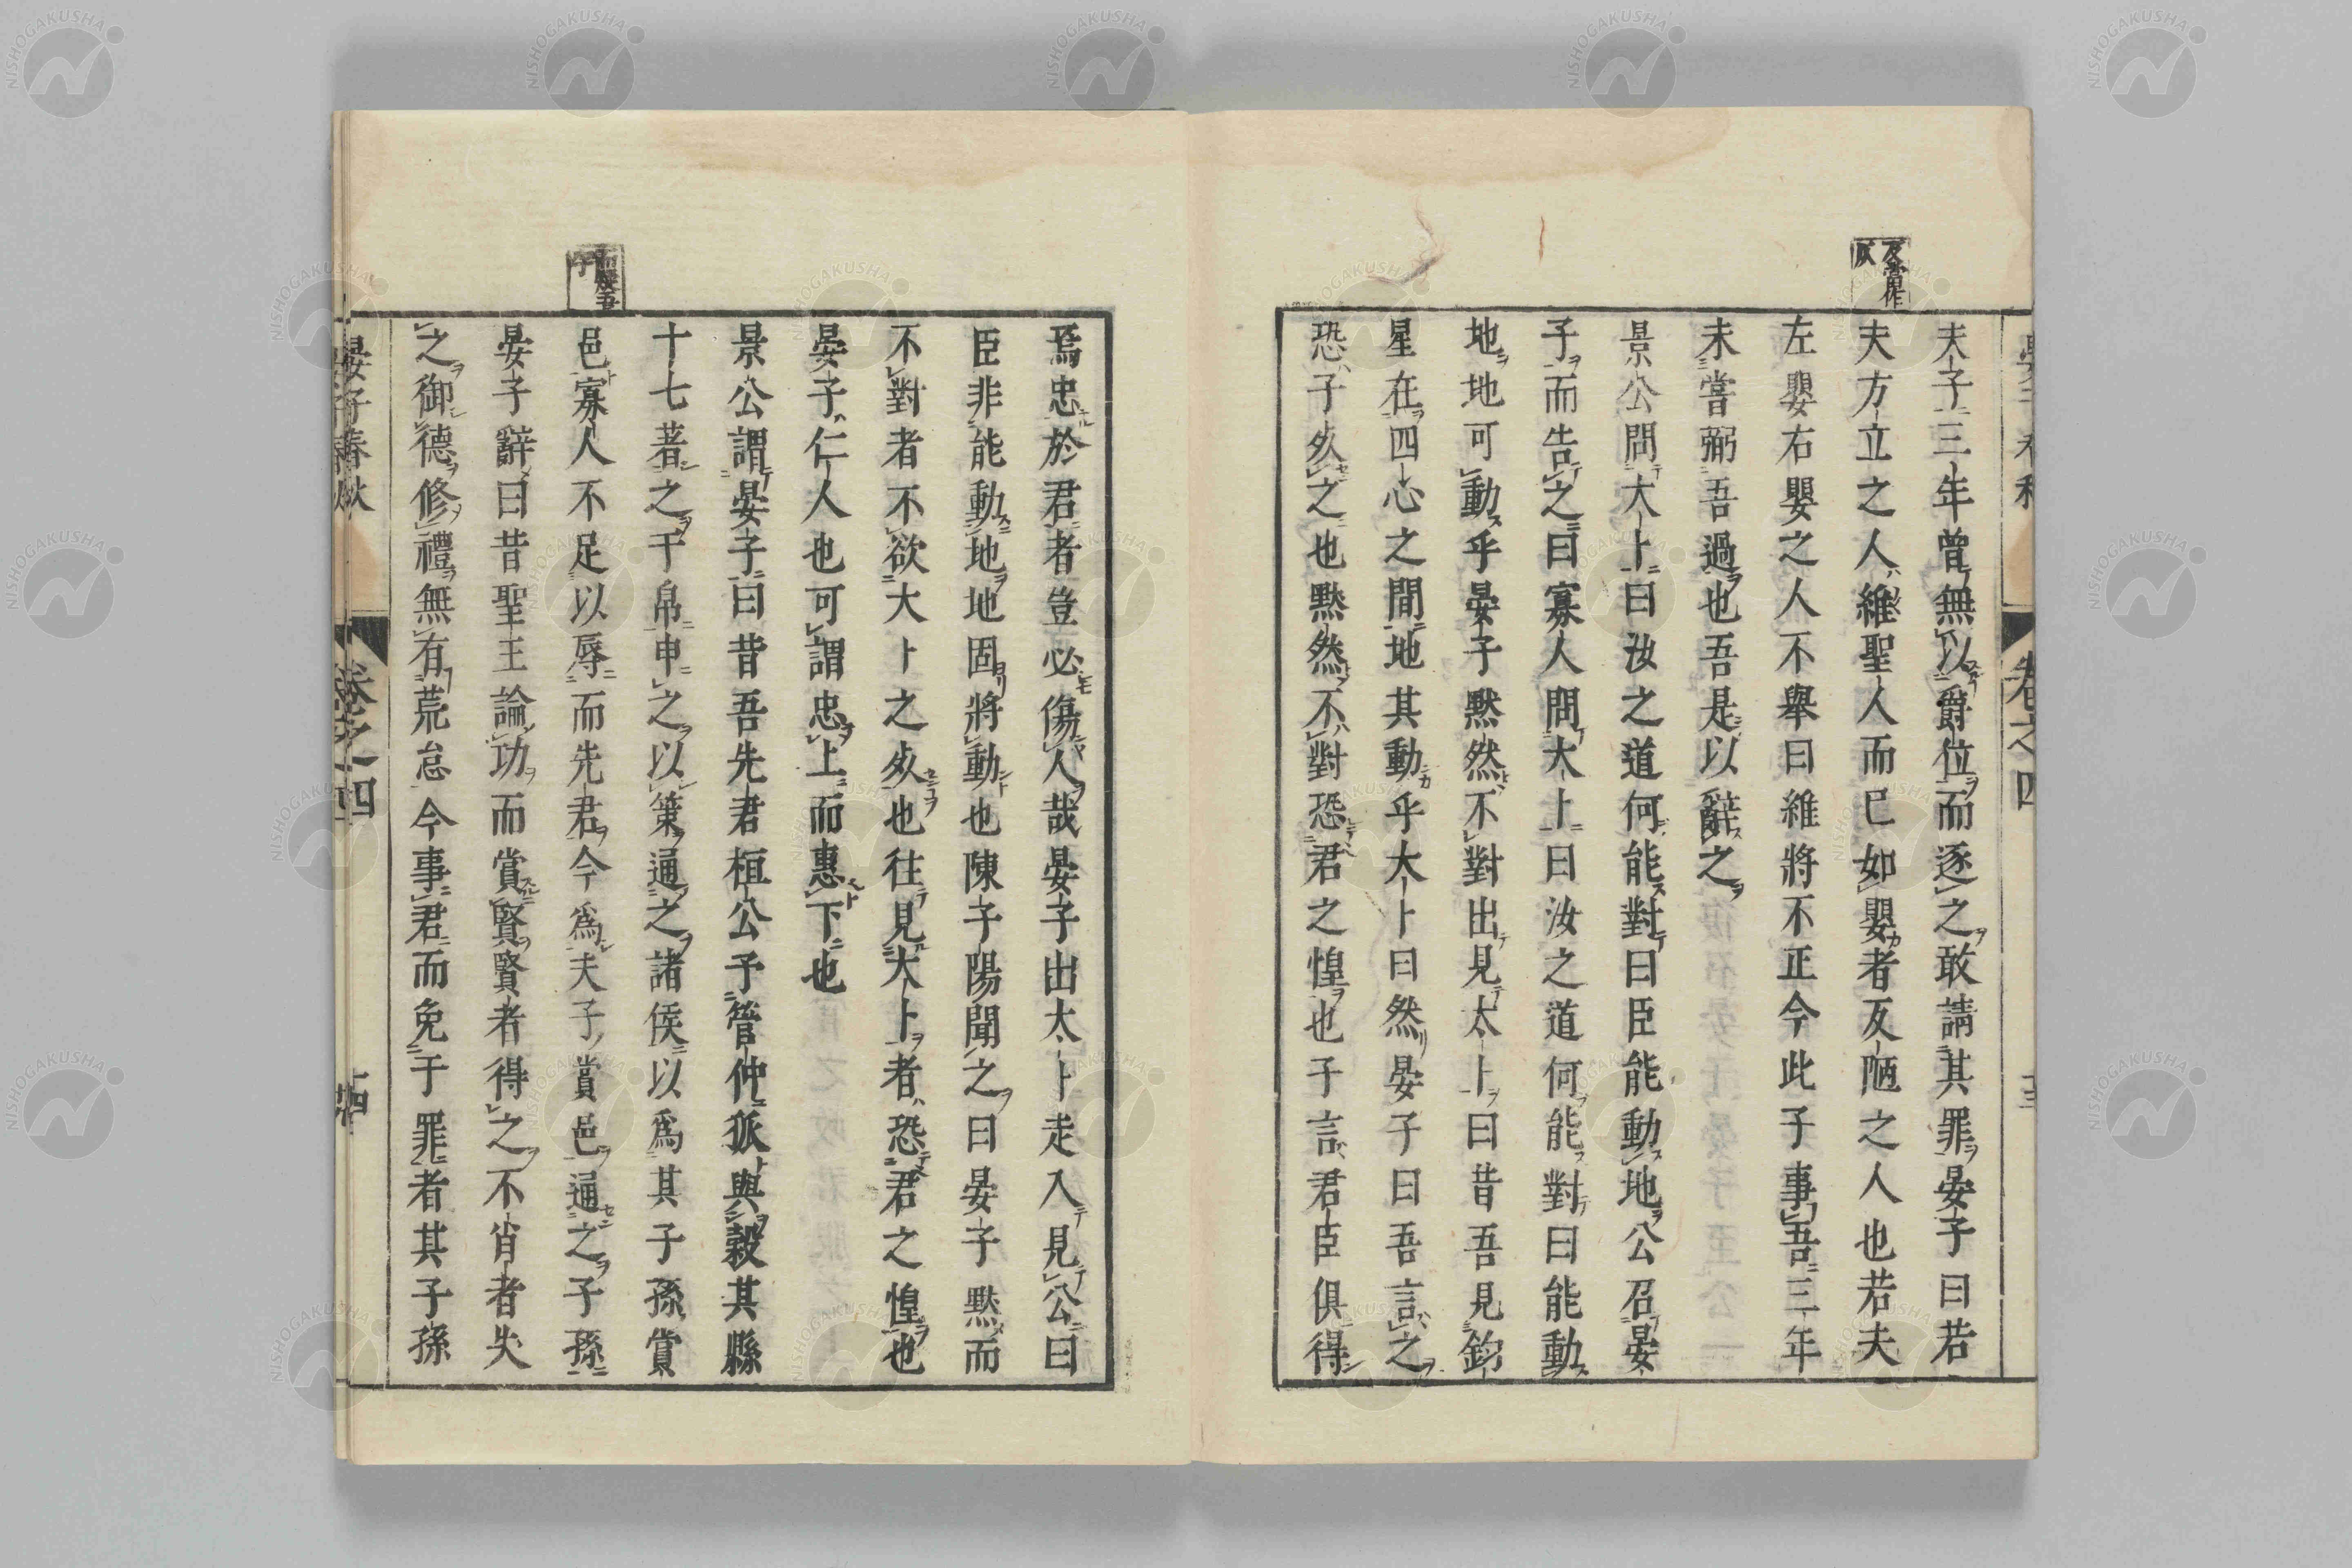 夫子三年曾無以爵位而逐之敢請其罪晏子曰若
夫方立之人維聖人而已如嬰者仄陋之人也若夫
左嬰右嬰之人不舉曰維將不正今此子事吾三年
未嘗弼吾過也吾是以辭之
景公問大卜曰汝之道何能對曰臣能動地公召晏
子而告之曰寡人問大卜曰汝之道何能對曰能動
地地可動乎晏子默然不對出見太卜曰昔吾見鉤
星在四心之間地其動乎大卜曰然晏子曰吾言之
恐子死之也默然不對恐君之惶也子言君臣俱得
焉忠於君者豈必傷人哉晏子出太卜走入見公曰
臣非能動地地固將動也陳子陽聞之曰晏子默而
不對者不欲大卜之死也往見大卜者恐君之惶也
晏子仁人也可謂忠上而惠下也
景公謂晏子曰昔吾先君桓公予管仲狐與穀其縣
十七著之于帛申之以策通之諸侯以爲其子孫賞
邑寡人不足以辱而先君今爲夫子賞邑通之子孫
晏子辭曰昔聖王論功而賞賢賢者得之不肖者失
之御德修禮無有荒怠今事君而免于罪者其子孫
晏子春秋
卷之四
十四